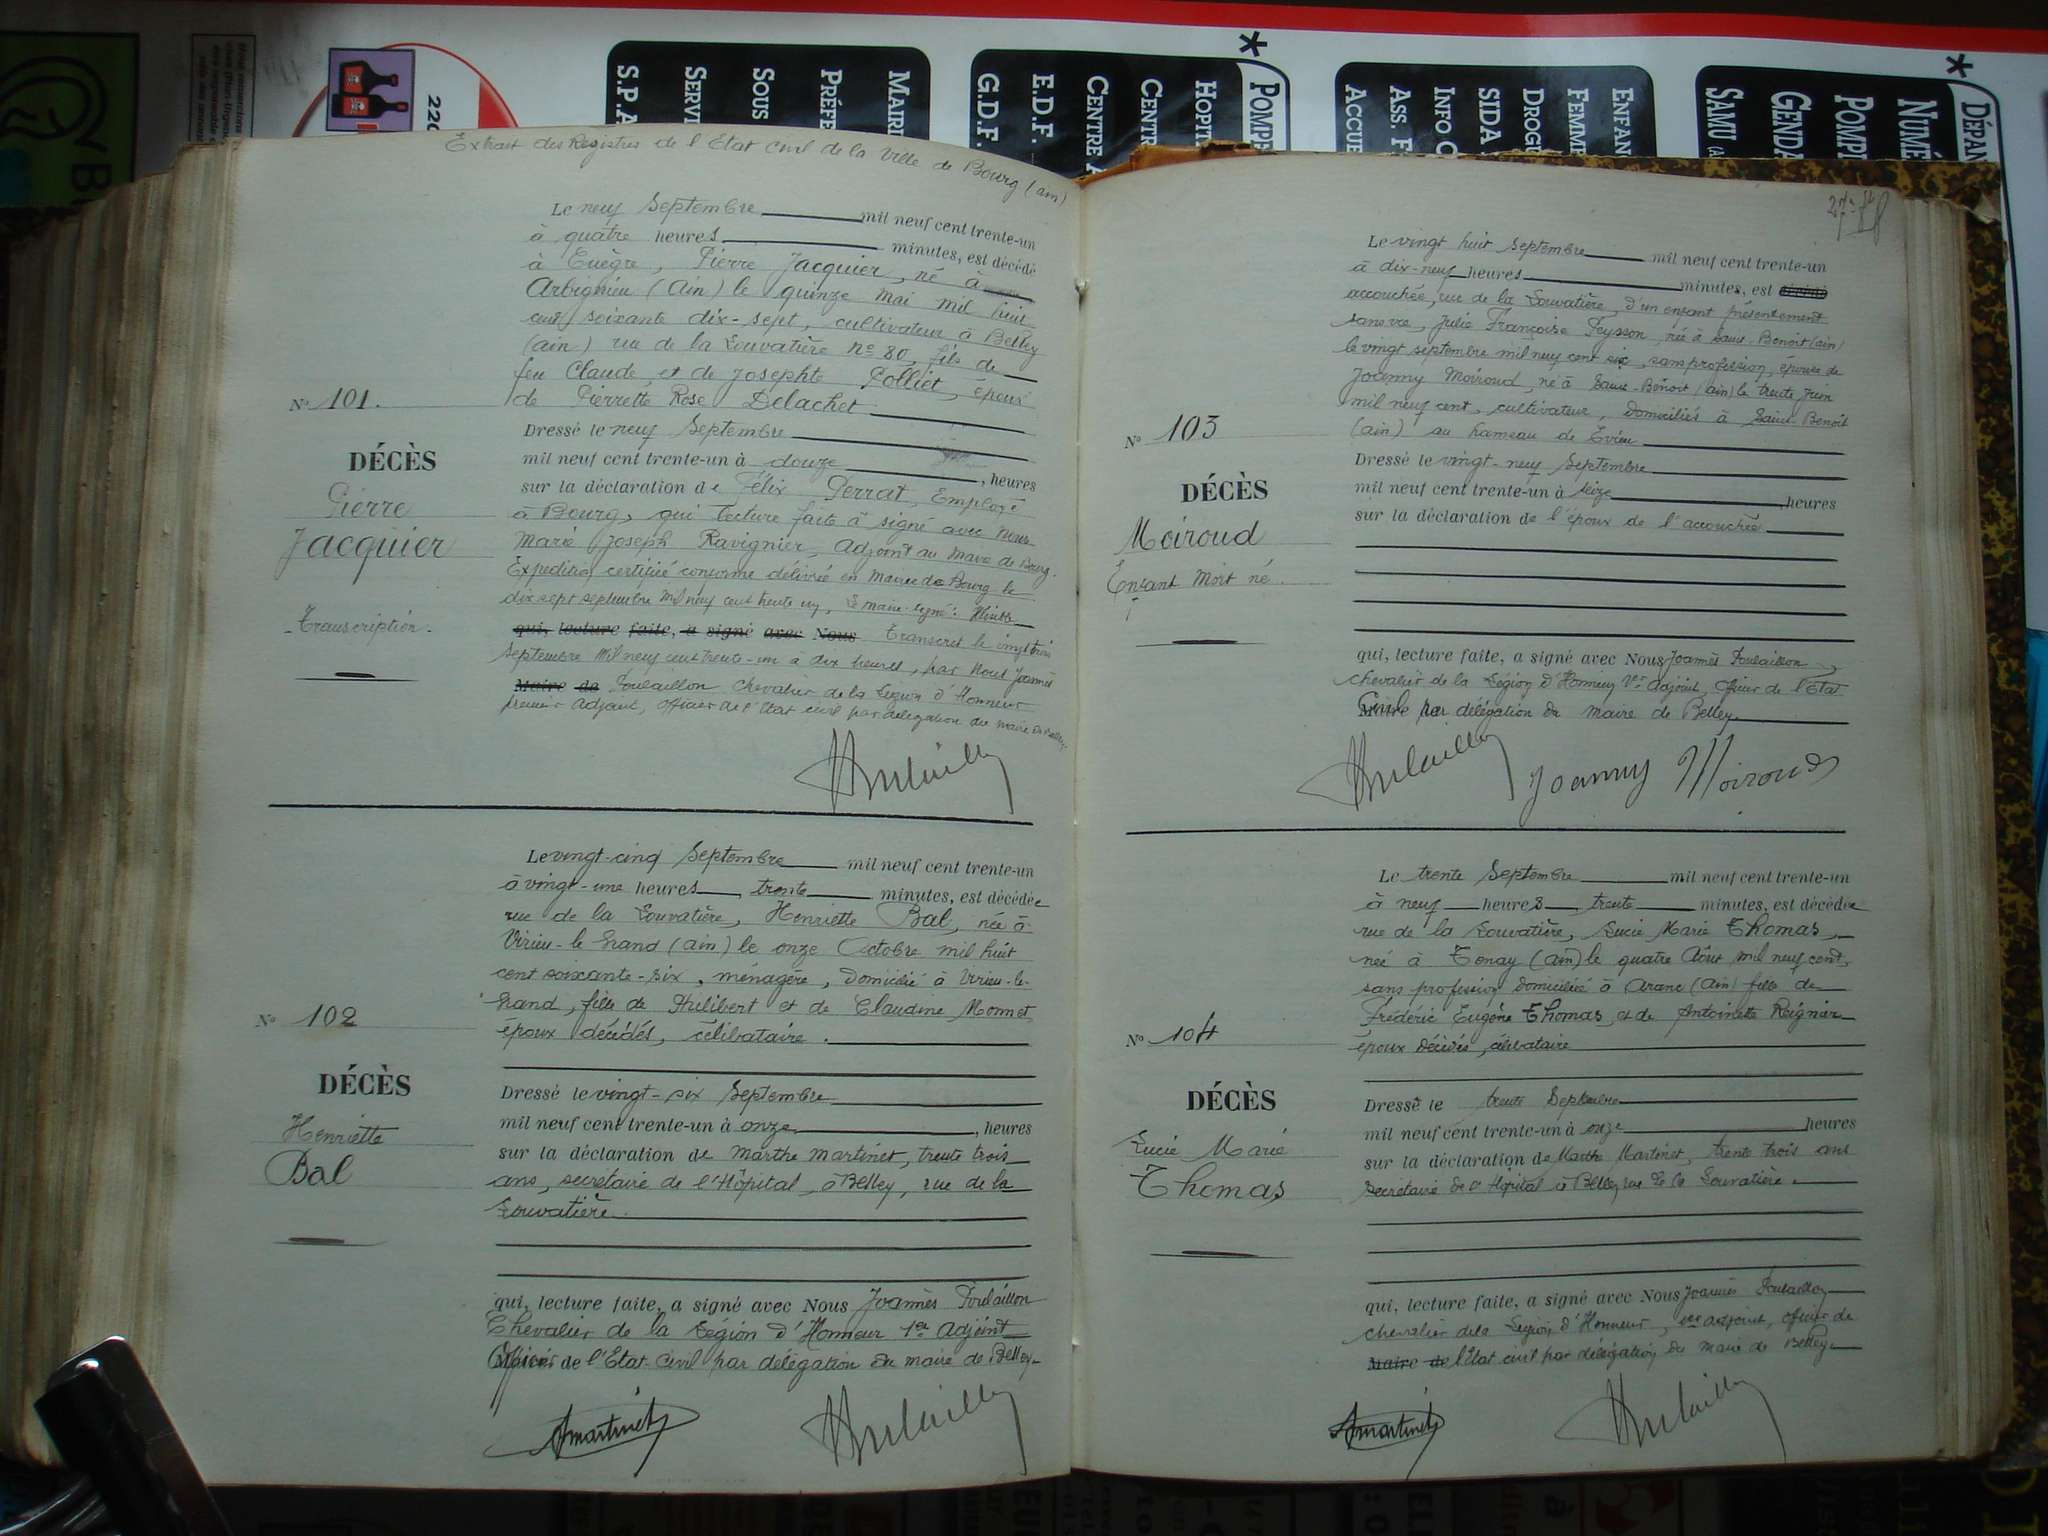 220
S.P.A
SERVI
SOUS
PRÉFE
MAIRI
G.D.F.
E.D.F.
CENTRE A
CENTR
HOPIT
POMPE
*
ACCUE
ASS. F
INFO
SIDA
DROG
FEMME
ENFAN
SAMU
GENDA
POMPI
NUMÉ
DÉPAN
*
Extrait des Registres de l'Etat Civil de la Ville de Bourg (ain)
Le neuf Septembre mil neuf cent trente-un
à quatre heures minutes, est décédé
à Cuègre, Pierre Jacquier, né à
Arbignieu (Ain) le quinze Mai mil huit
cent soixante dix-sept, cultivateur à Belley
(ain) rue de la Louvatière No 80, fils de
feu Claude et de Josephte Polliet, époux
de Pierrette Rose Delachet
No 101.
DÉCÈS
Pierre
Jacquier
Transcription
Dressé le neuf Septembre
mil neuf cent trente-un à douze, heures
sur la déclaration de Félix Perrat, Employé
à Bourg, qui lecture faite à signé avec Nous
Marie Joseph Ravignier, adjoint au maire de Bourg.
Expédition certifiée conforme délivrée en Mairie de Bourg le
dix sept septembre mil neuf cent trente un, Le maire signé:
qui, lecture faite, a signé avec Nous Transcrit le vingt trois
Septembre mil neuf cent trente-un à dix heures, par Nous Joannès
Maire de Poulaillon Chevalier de la Légion d'Honneur
premier Adjoint, officier de l'Etat civil par délégation du maire de Belley.
No 102
DÉCÈS
Henriette
Bal
Le vingt-cinq Septembre mil neuf cent trente-un
à vingt-une heures trente minutes, est décédée
rue de la Louvatière, Henriette Bal, née à
Virieu-le-Grand (ain) le onze Octobre mil huit
cent soixante-six, ménagère, domicilié à Virieu-le-
Grand, fille de Philibert et de Claudine Monnet
époux décédés, célibataire.
Dressé le vingt-six Septembre
mil neuf cent trente-un à onze, heures
sur la déclaration de Marthe Martinet, trente trois
ans, secrétaire de l'Hôpital, à Belley, rue de la
Louvatière.
qui, lecture faite, a signé avec Nous Joannès Poulaillon
Chevalier de la Légion d'Honneur 1er Adjoint
Officier de l'Etat civil par délégation du maire de Belley
Martinet
27
Le vingt huit Septembre mil neuf cent trente-un
à dix-neuf heures minutes, est décédé
accouchée, rue de la Louvatière, d'un enfant présentement
sans vie, Julie Françoise Peysson, née à Saint-Benoit (ain)
le vingt septembre mil neuf cent six, sans profession, épouse de
Joanny Moiroud, né à Saint-Benoit (ain) le trente Juin
mil neuf cent, cultivateur, domiciliés à Saint-Benoit
(ain) au hameau de Evieu
No 103
DÉCÈS
Moiroud
Enfant Mort né.
Dressé le vingt-neuf Septembre
mil neuf cent trente-un à seize, heures
sur la déclaration de l'époux de l'accouchée
qui, lecture faite, a signé avec Nous Joannès Poulaillon,
chevalier de la Légion d'Honneur 1er adjoint, officier de l'Etat
Civil par délégation du maire de Belley.
Joanny Moiroud
No 104
DÉCÈS
Lucie Marie
Thomas
Le trente Septembre mil neuf cent trente-un
à neuf heures trente minutes, est décédée
rue de la Louvatière, Lucie Marie Thomas,
née à Tenay (ain) le quatre Août mil neuf cent,
sans profession domiciliée à Aranc (Ain) fille de
Frédéric Eugène Thomas et de Antoinette Reignier
époux décédés, célibataire
Dressé le trente Septembre
mil neuf cent trente-un à onze heures
sur la déclaration de Marthe Martinet, trente trois ans
secrétaire de l'Hôpital à Belley rue de la Louvatière.
qui, lecture faite, a signé avec Nous Joannès Poulaillon
chevalier de la Légion d'Honneur, 1er adjoint, officier de
Maire de l'Etat civil par délégation du maire de Belley
Martinet